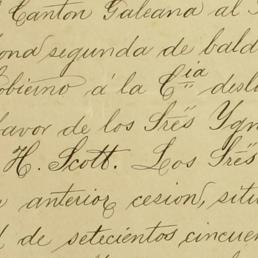 Canton Galeana al
zona segunda de bald
obierno á la Cia desl
favor de los Sres Ygn
H. Scott. Los Sres
anterior cesion, situ
de setecientos cincuen